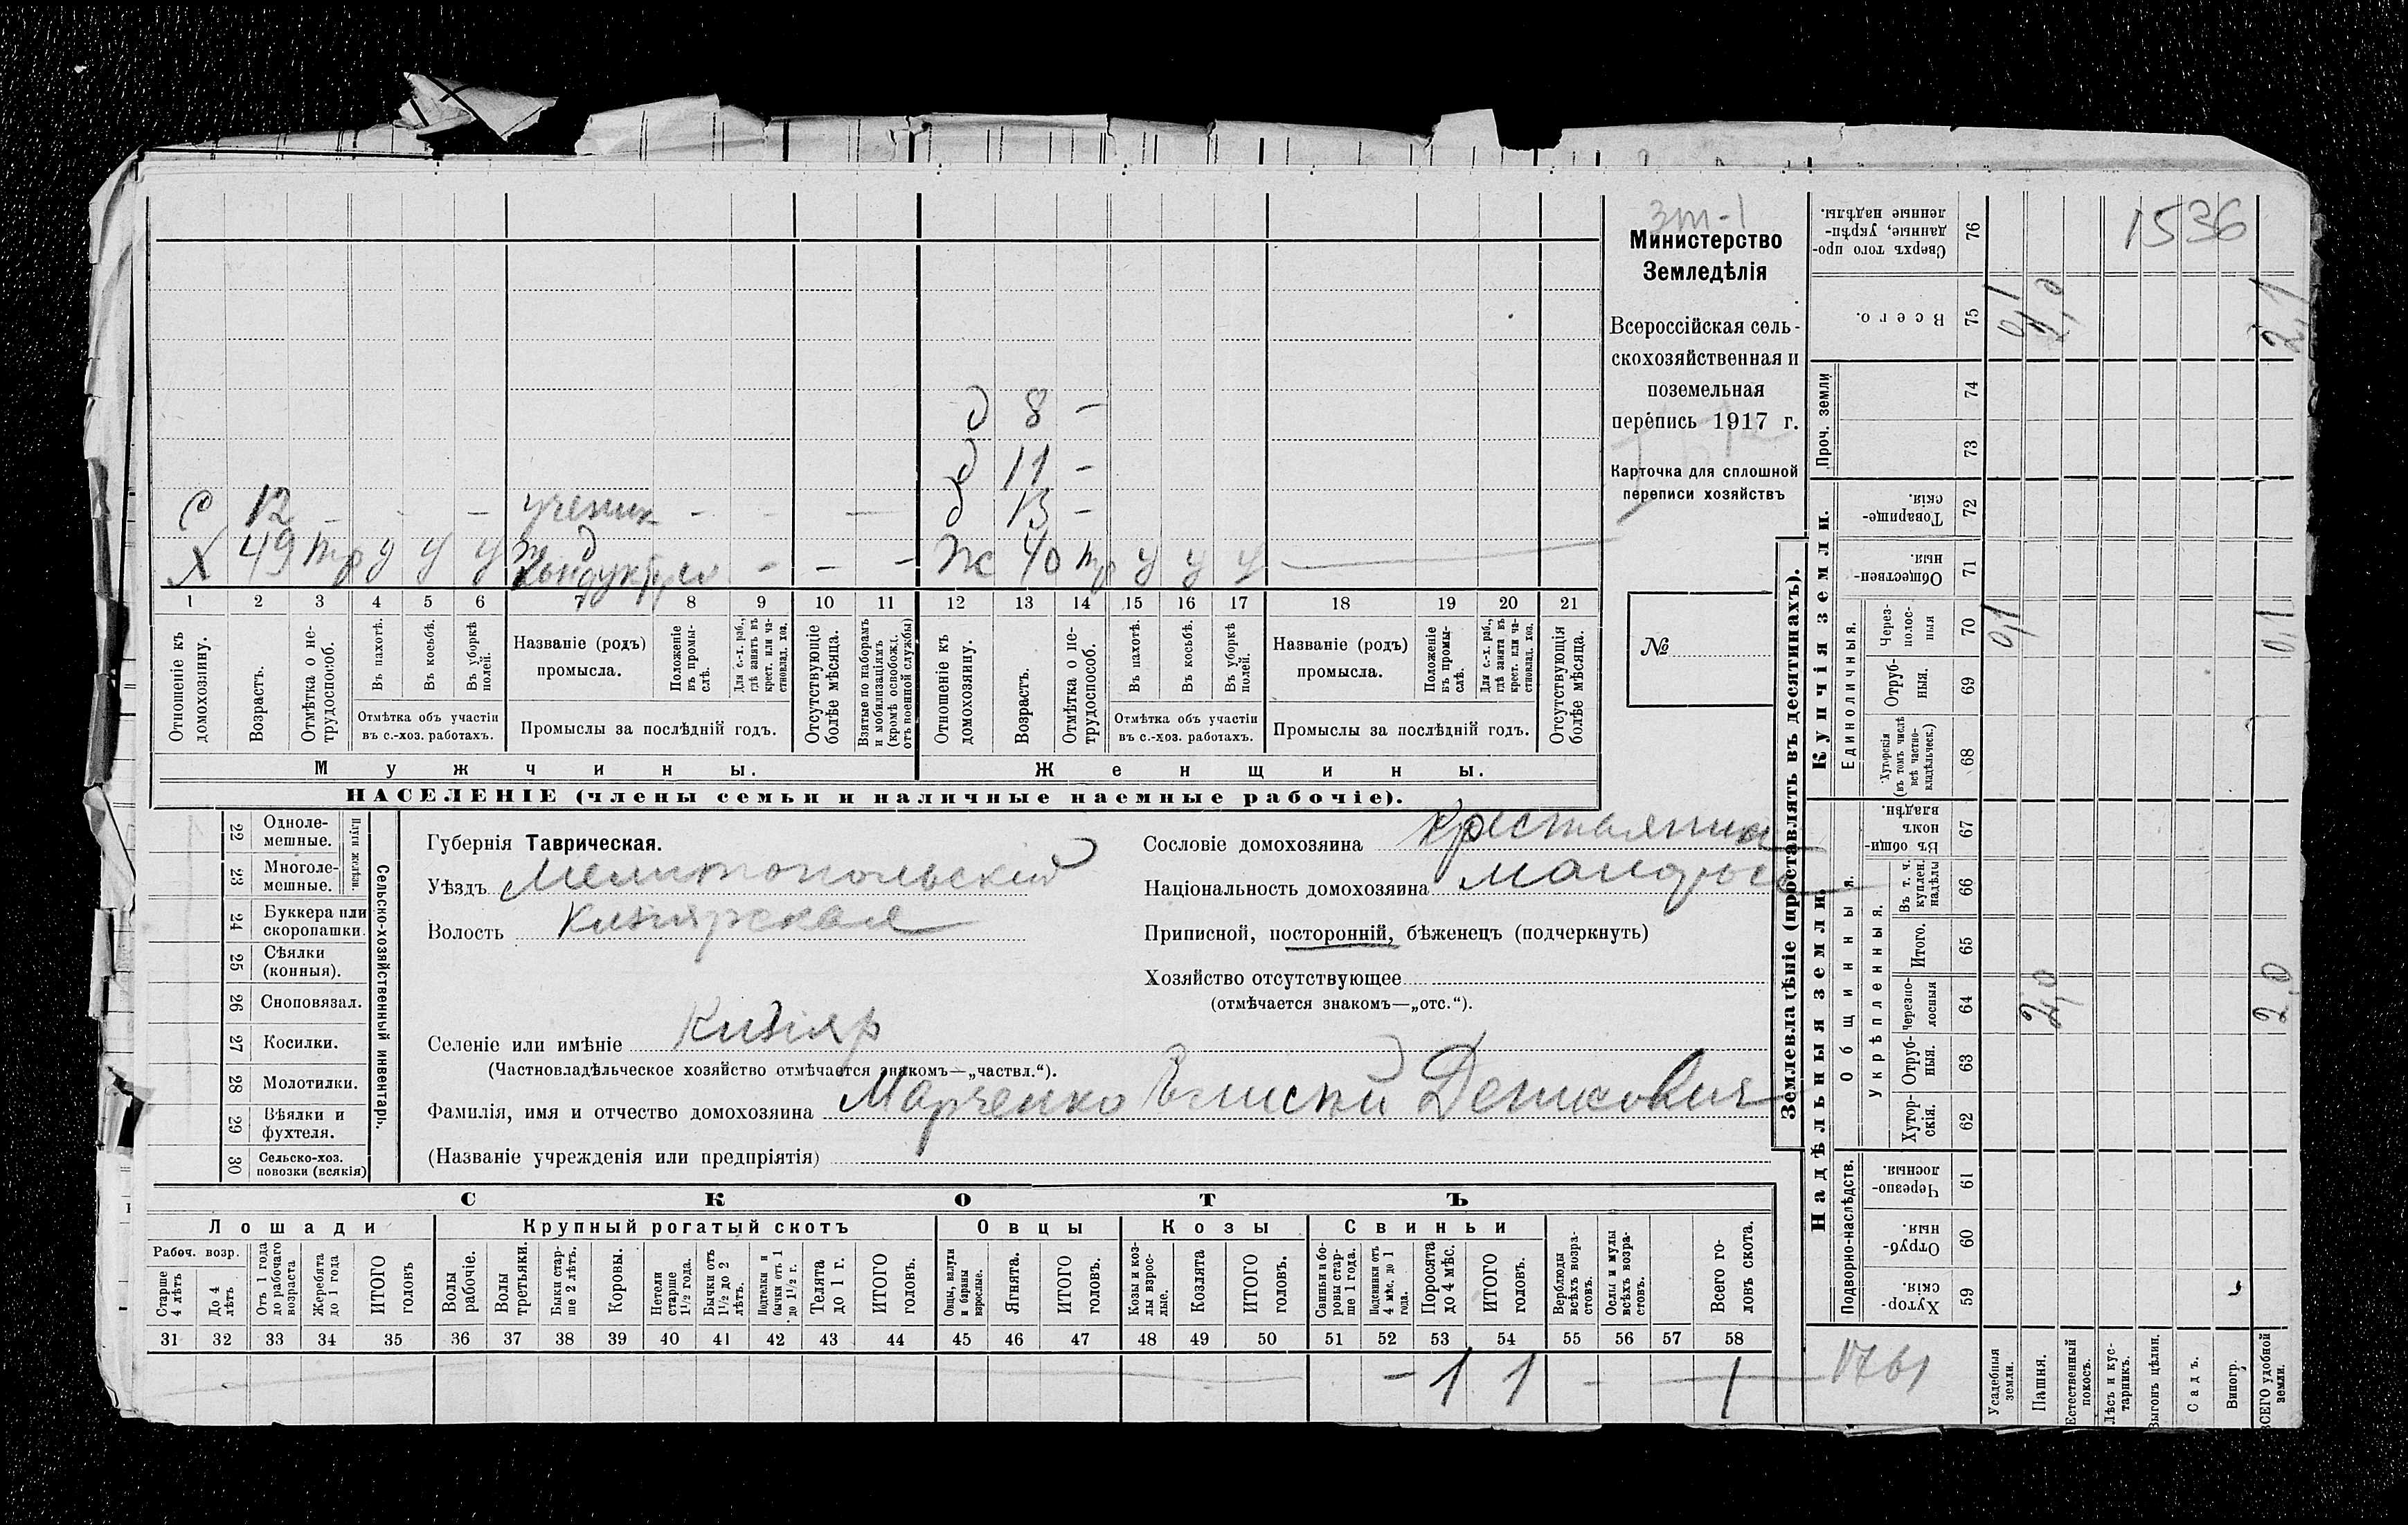 1536
зт-1
Министерство
Земледѣлія
Всероссійская сель-
скохозяйственная и
поземельная
перепись 1917 г.
Карточка для сплошной
переписи хозяйствъ
№
д 8 –
д 11 –
с 12 – – – ученик – – – д 13 –
х 49 тр у у у ж д кондуктор – – – ж 40 тр у у у
1 2 3 4 5 6 7 8 9 10 11 12 13 14 15 16 17 18 19 20 21
Отношеніе къ домохозяину.
Возрастъ.
Отмѣтка о не-трудоспособ.
Въ пахотѣ.
Въ косьбѣ.
Въ уборкѣ полей.
Отмѣтка объ участіи
въ с.-хоз. работахъ.
Названіе (родъ)
промысла.
Положеніе въ промы-слѣ.
Для с.-х. раб., гдѣ занятъ въ крест. или ча-стновлад. хоз.
Промыслы за послѣдній годъ.
Отсутствующіе болѣе мѣсяца.
Взятые по наборамъ и мобилизаціямъ (кромѣ освобожд. отъ военной службы)
Отношеніе къ домохозяину.
Возрастъ.
Отмѣтка о не-трудоспособ.
Въ пахотѣ.
Въ косьбѣ.
Въ уборкѣ полей.
Отмѣтка объ участіи
въ с.-хоз. работахъ.
Названіе (родъ)
промысла.
Положеніе въ промы-слѣ.
Для с.-х. раб., гдѣ занята въ крест. или ча-стновлад. хоз.
Промыслы за послѣдній годъ.
Отсутствующія болѣе мѣсяца.
Мужчины.
Женщины.
НАСЕЛЕНІЕ (члены семьи и наличные наемные рабочіе).
Сельско-хозяйственный инвентарь.
22 Одноле-мешные.
23 Многоле-мешные.
24 Буккера или скоропашки.
25 Сѣялки (конныя).
26 Сноповязал.
27 Косилки.
28 Молотилки.
29 Вѣялки и фухтеля.
30 Сельско-хоз. повозки (всякія)
Губернія Таврическая.
Уѣздъ Мелитопольский
Волость Кизиярская
Селеніе или имѣніе Кизияр
(Частновладѣльческое хозяйство отмѣчается знакомъ—„частвл.“).
Фамилія, имя и отчество домохозяина Марченко Елисей Денисович
(Названіе учрежденія или предпріятія)
Сословіе домохозяина крестьянин
Національность домохозяина малорос
Приписной, посторонній, бѣженецъ (подчеркнуть)
Хозяйство отсутствующее
(отмѣчается знакомъ—„отс.“).
СКОТЪ
Лошади
Крупный рогатый скотъ
Овцы
Козы
Свиньи
Рабоч. возр.
Старше 4 лѣтъ
До 4 лѣтъ
Отъ 1 года до рабочаго возраста
Жеребята до 1 года
ИТОГО головъ
Волы рабочіе.
Волы третьяки.
Быки стар-ше 2 лѣтъ.
Коровы.
Нетели старше 1½ года.
Бычки отъ 1½ до 2 лѣтъ.
Подтелки и бычки отъ 1 до 1½ г.
Телята до 1 г.
ИТОГО головъ.
Овцы, валухи и бараны взрослые.
Ягнята.
ИТОГО головъ.
Козы и коз-лы взрос-лые.
Козлята
ИТОГО головъ.
Свиньи и бо-ровы стар-ше 1 года.
Подсвинки отъ 4 мѣс. до 1 года.
Поросята до 4 мѣс.
ИТОГО головъ.
Верблюды всѣхъ возра-стовъ.
Ослы и мулы всѣхъ возра-стовъ.
Всего го-ловъ скота.
31 32 33 34 35 36 37 38 39 40 41 42 43 44 45 46 47 48 49 50 51 52 53 54 55 56 57 58
– 1 1 – 1
Землевладѣніе (проставлять въ десятинахъ).
Купчія земли.
Надѣльныя земли.
Проч. земли
Единоличныя.
Общинныя.
Укрѣпленныя.
Подворно-наслѣдств.
76 Сверхъ того про-данные, укрѣп-ленные надѣлы.
75 Всего. 0,1 2,0 2,1
74
73
72 Товарище-скія.
71 Обществен-ныя
70 Через-полос-ныя 0,1 0,1
69 Отруб-ныя.
68 Хуторскія (въ томъ числѣ всѣ частно-владѣльческ.)
67 Въ общи-номъ владѣн.
66 Въ т. ч. куплен. надѣлы
65 Итого.
64 Черезпо-лосныя 2,0 2,0
63 Отруб-ныя.
62 Хутор-скія.
61 Черезпо-лосныя.
60 Отруб-ныя.
59 Хутор-скія.
1761
Усадебныя земли.
Пашня.
Естественный покосъ.
Лѣсъ и кус-тарникъ.
Выгонъ цѣлин.
Садъ.
Виногр.
ВСЕГО удобной земли.